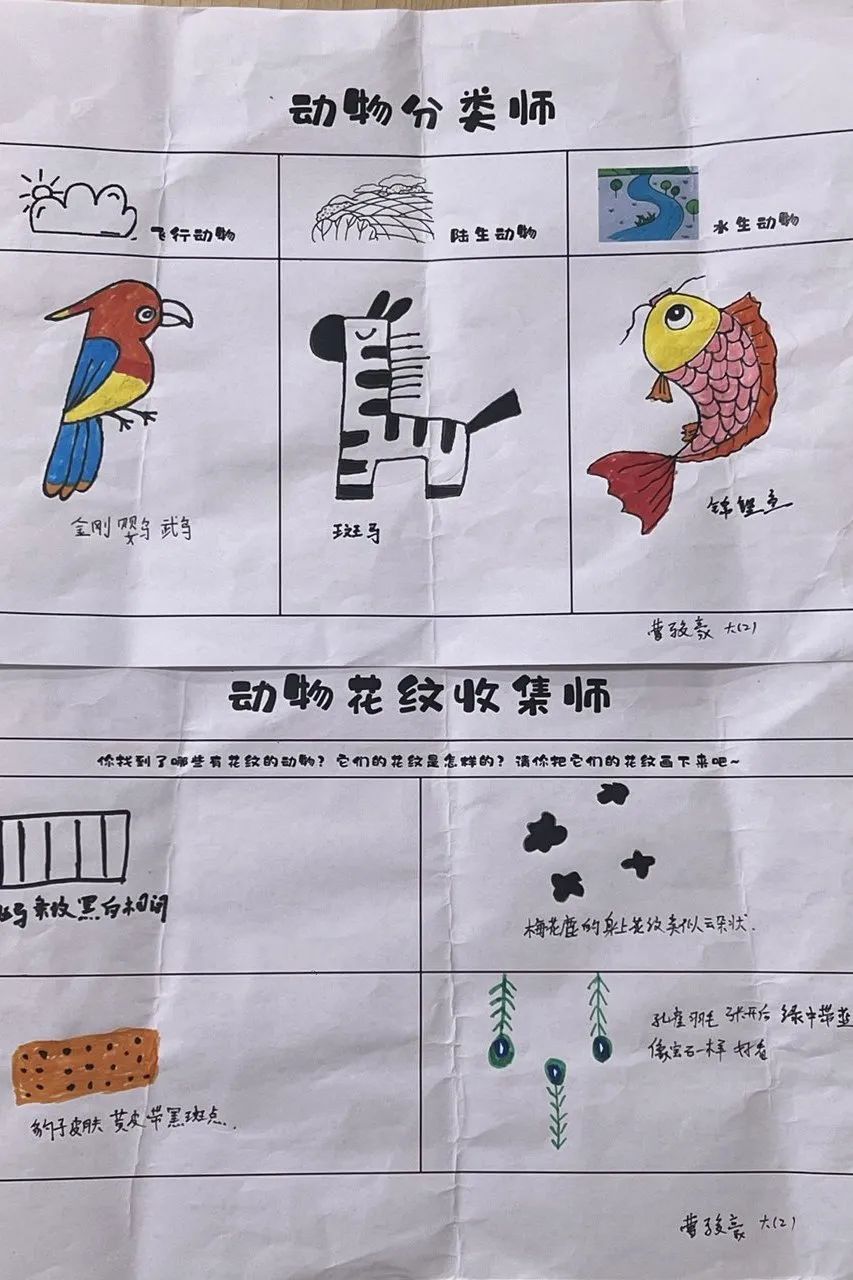 动物分类师
飞行动物
陆生动物
水生动物
金刚鹦鹉
斑马
锦鲤鱼
曹骏豪 大(2)
动物花纹收集师
你找到了哪些有花纹的动物？它们的花纹是怎样的？请你把它们的花纹画下来吧~
斑马条纹黑白相间
梅花鹿的身上花纹类似云朵状.
豹子皮肤 黄皮带黑斑点.
孔雀羽毛 张开后 绿中带蓝
像宝石一样 好看
曹骏豪 大(2)